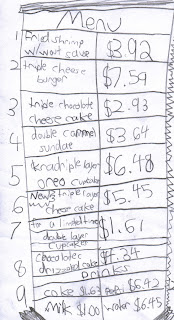 Menu
1 Fried shrimp $3.92
2 triple cheese burger $7.59
3 triple chocolate cheese cake $2.93
4 double caramel sundae $3.64
5 kradriple layer oreo cupcake $6.48
6 triple layer chear cake $5.45
7 for a limited time double layer cupcakes $1.61
8 chocolatee drizzaled cake
Drinks
9 coke $1.63 $6.42
milk $1.00 water $6.45